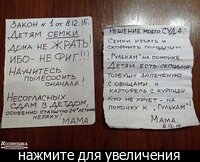 ЗАКОН №1 от 8.12.15.
ДЕТЯМ СЕМКИ
ДОМА НЕ ЖРАТЬ
ИБО - НЕ ФИГ!!!
НАУЧИТЕСЬ
ПЫЛЕСОСИТЬ
СНАЧАЛА!
НЕСОГЛАСНЫХ
СДАМ В ДЕТДОМ
ОСОБЕННО СТАРШУЮ
НЕРЯХУ
МАМА
РЕШЕНИЕ МОЕГО СУДА:
СЕМКИ ИЗЪЯТЬ И
СКОРМИТЬ ГОЛОДНЫМ
"ГУЛЬКАМ" НА ПОМОЙКЕ.
ДЕТЯМ ЕСТЬ
ГОРБУШУ ЗАПЕЧЕННУЮ
С ОВОЩАМИ И
КАРТОФЕЛЬ С КУРИЦЕЙ
КТО НЕ ХОЧЕТ - НА
ПОМОЙКУ К "ГУЛЬКАМ"!
МАМА.
нажмите для увеличения